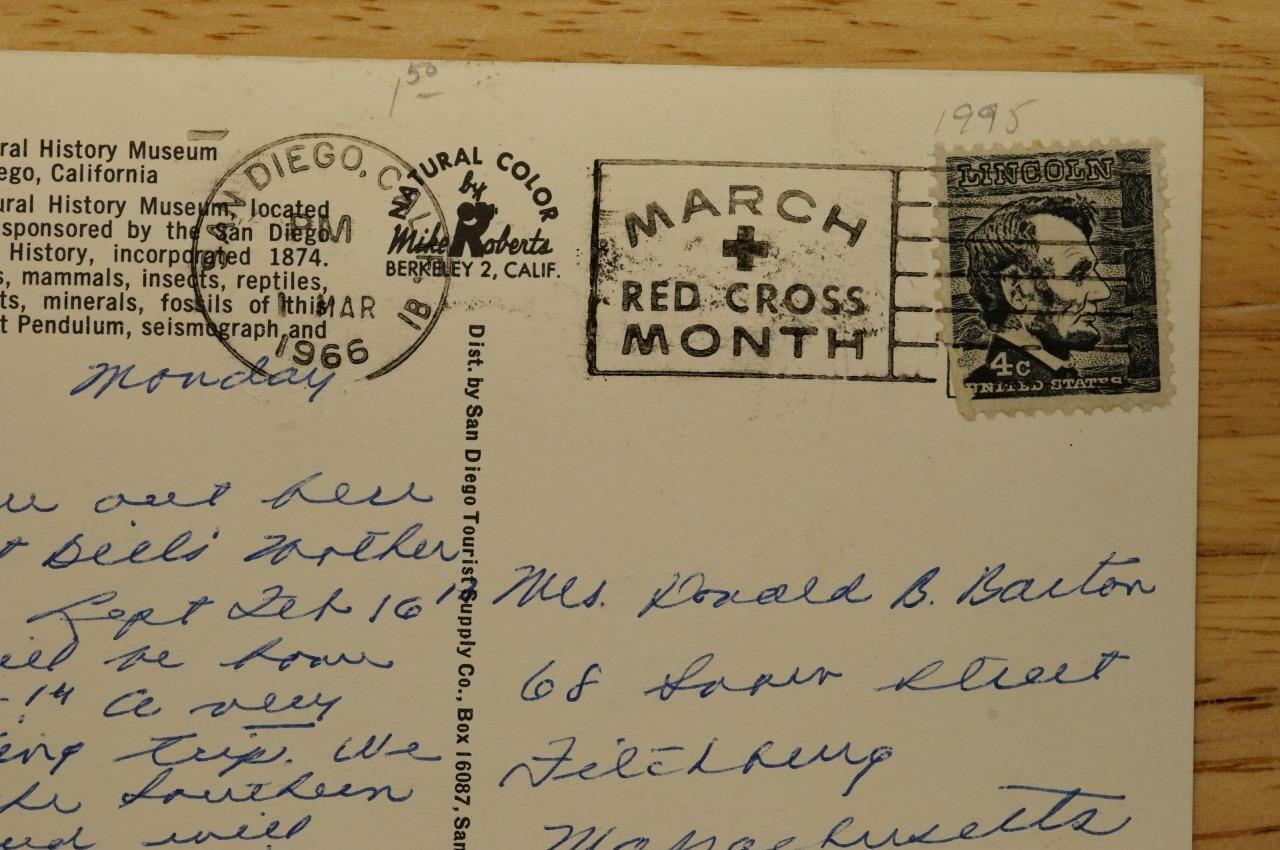 1 50
1995
ral History Museum
ego, California
ural History Museum, located
sponsored by the San Diego
History, incorporated 1874.
s, mammals, insects, reptiles,
ts, minerals, fossils of this
t Pendulum, seismograph and
SAN DIEGO, CALIF.
PM
1 MAR
1966
NATURAL COLOR
by
Mike Roberts
BERKELEY 2, CALIF.
MARCH
RED CROSS
MONTH
LINCOLN
4c
UNITED STATES
Dist. by San Diego Tourist Supply Co., Box 16087, San
Monday
out here
Bill's Mother
Feb 16
will be home
14 A very
trip. We
Southern
will
Mrs. Donald B. Barton
68 Street
Fitchburg
Massachusetts